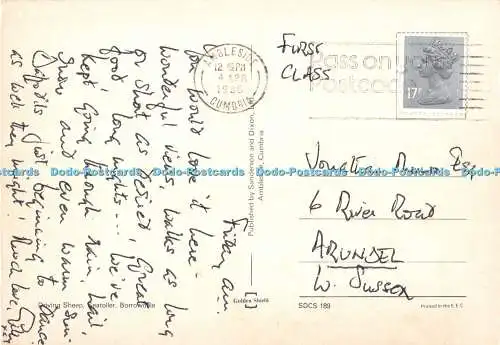 Friday am.
You would love it here -
Wonderful views, walks as long
or short as desired, great
food, long nights... We've
kept going through rain, hail,
snow and even warm sun-
Daffodils just beginning to dance
as well they might! Much love,
AMBLESIDE
12 15 PM
4 APR
1986
CUMBRIA
Pass on
Postcod
17
FIRST
CLASS
Esq
6 River Road
ARUNDEL
W. Sussex
Published by Sanderson and Dixon,
Ambleside, Cumbria
Golden Shield
Driving Sheep, Seatoller, Borrowdale
SDCS 189
Printed in the E.E.C.
Dodo-Postcards Dodo-Postcards Dodo-Postcards Dodo-Postcards Dodo-Postcards